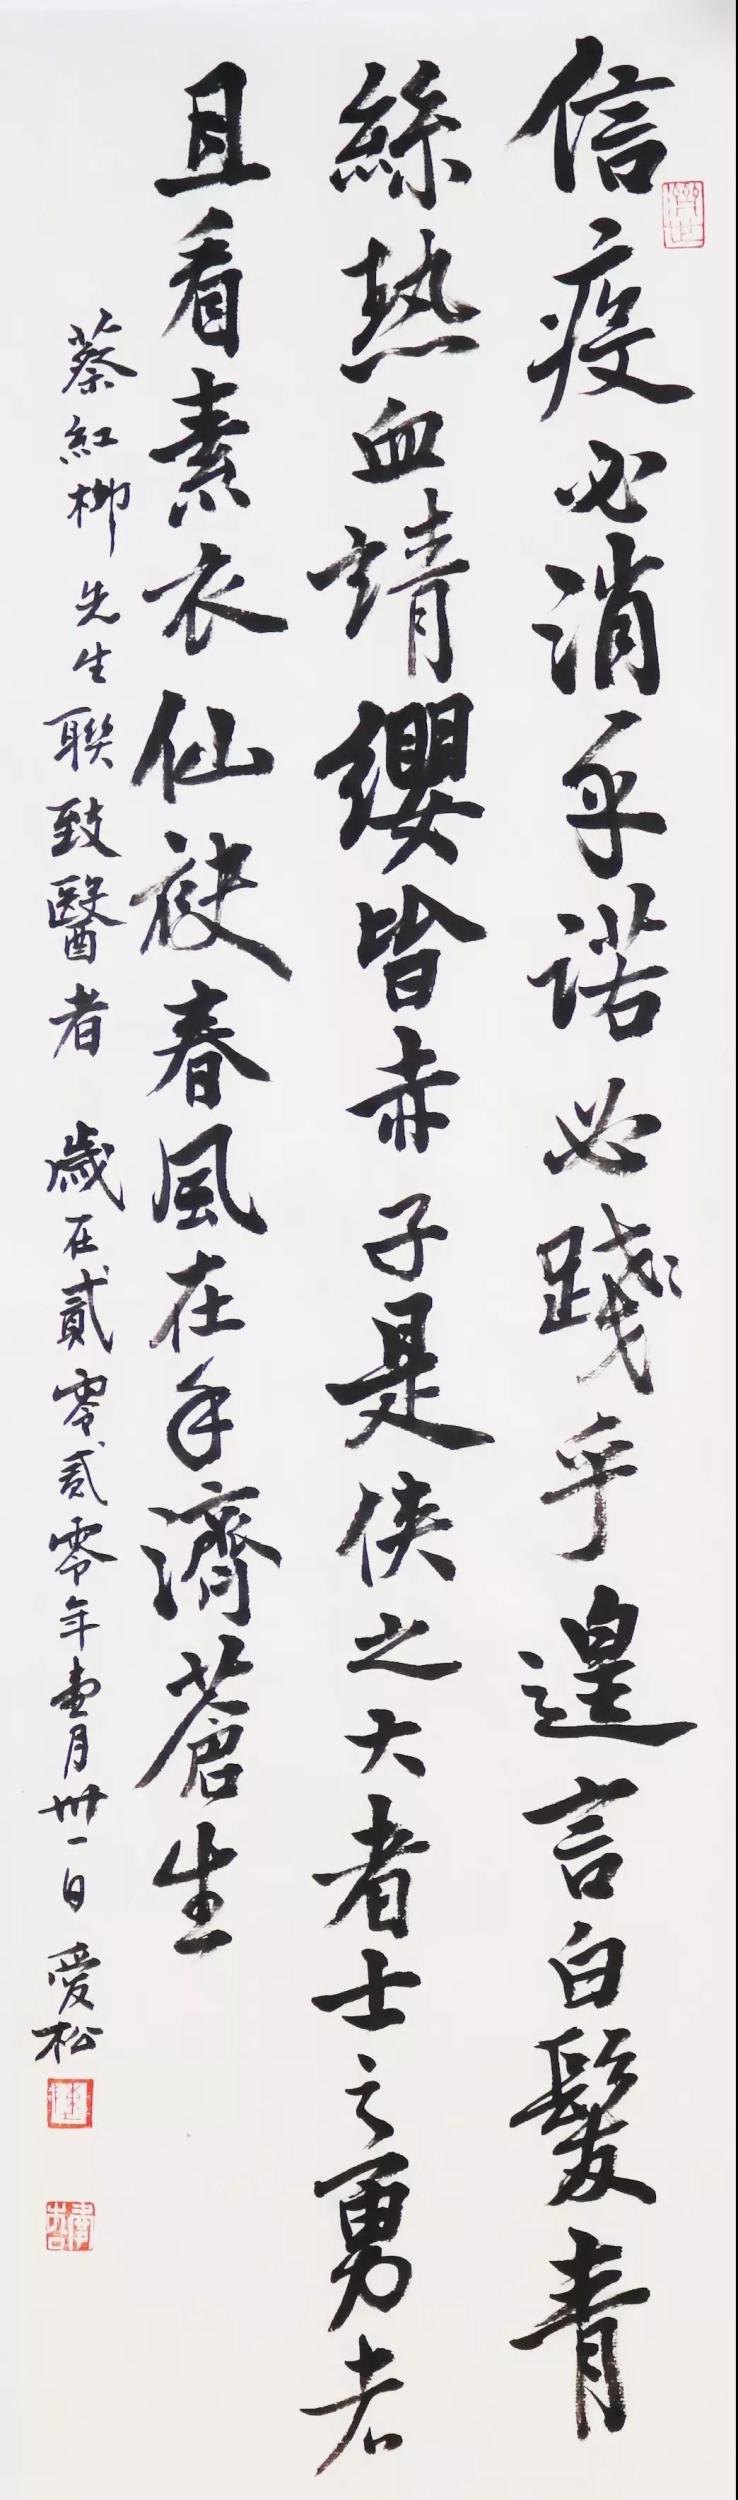 信疫必消乎諾必踐乎遑言白髮青
絲熱血請纓皆赤子是俠之大者士之勇者
且看素衣仙袂春風在手濟蒼生
蔡紅柳先生聯致醫者 歲在貳零貳零年壹月卅一日 愛松